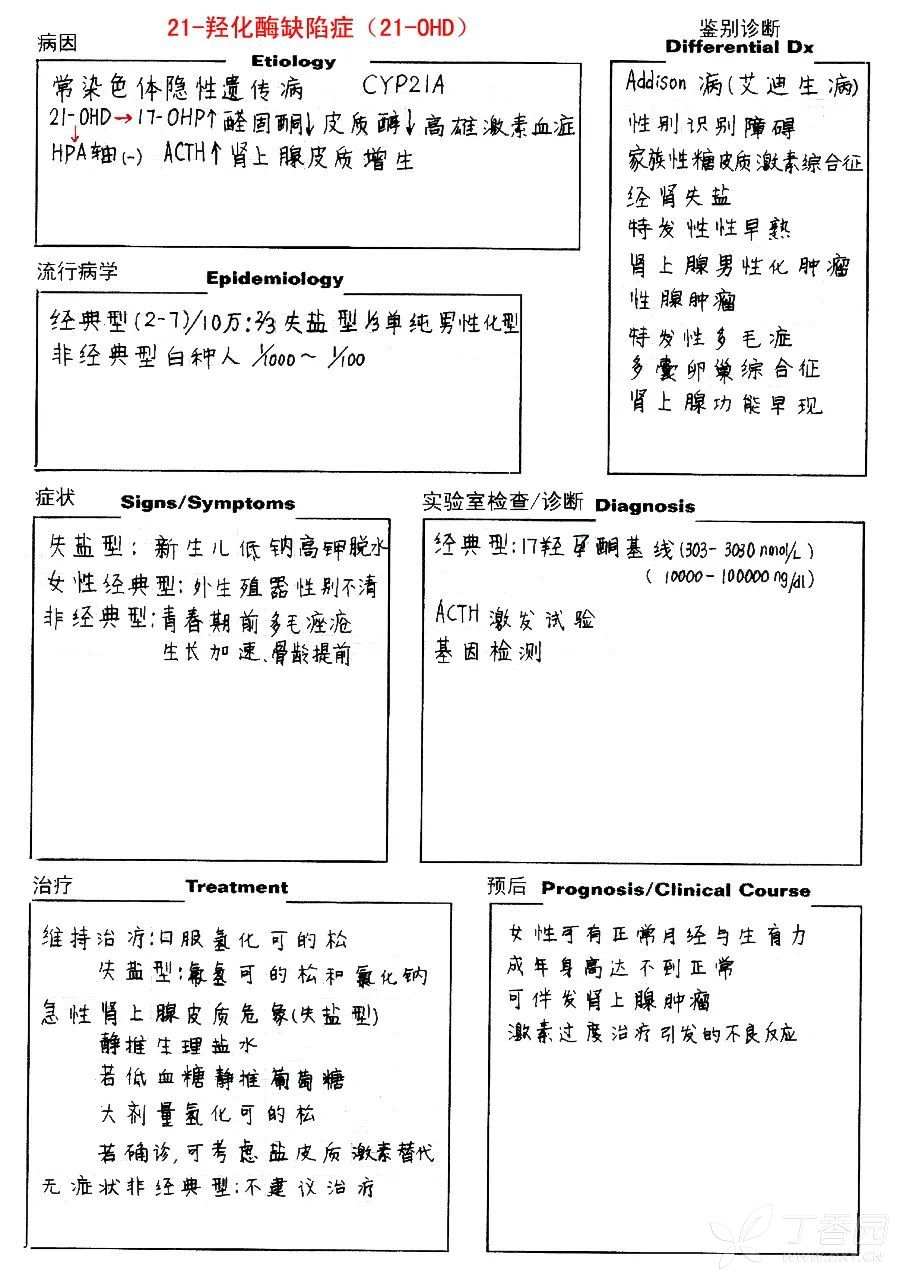 21-羟化酶缺陷症（21-OHD）
病因
Etiology
常染色体隐性遗传病 CYP21A
21-OHD→17-OHP↑醛固酮↓皮质醇↓高雄激素血症
↓
HPA轴(-) ACTH↑肾上腺皮质增生
鉴别诊断
Differential Dx
Addison 病(艾迪生病)
性别识别障碍
家族性糖皮质激素综合征
经肾失盐
特发性性早熟
肾上腺男性化肿瘤
性腺肿瘤
特发性多毛症
多囊卵巢综合征
肾上腺功能早现
流行病学
Epidemiology
经典型(2-7)/10万:2/3失盐型 1/3单纯男性化型
非经典型白种人 1/1000～1/100
症状
Signs/Symptoms
失盐型：新生儿低钠高钾脱水
女性经典型:外生殖器性别不清
非经典型:青春期前多毛痤疮
生长加速、骨龄提前
实验室检查/诊断 Diagnosis
经典型:17羟孕酮基线(303-3030nmol/L)
(10000-100000ng/dl)
ACTH激发试验
基因检测
治疗
Treatment
维持治疗:口服氢化可的松
失盐型:氟氢可的松和氯化钠
急性肾上腺皮质危象(失盐型)
静推生理盐水
若低血糖静推葡萄糖
大剂量氢化可的松
若确诊,可考虑盐皮质激素替代
无症状非经典型:不建议治疗
预后 Prognosis/Clinical Course
女性可有正常月经与生育力
成年身高达不到正常
可伴发肾上腺肿瘤
激素过度治疗引发的不良反应
丁香园